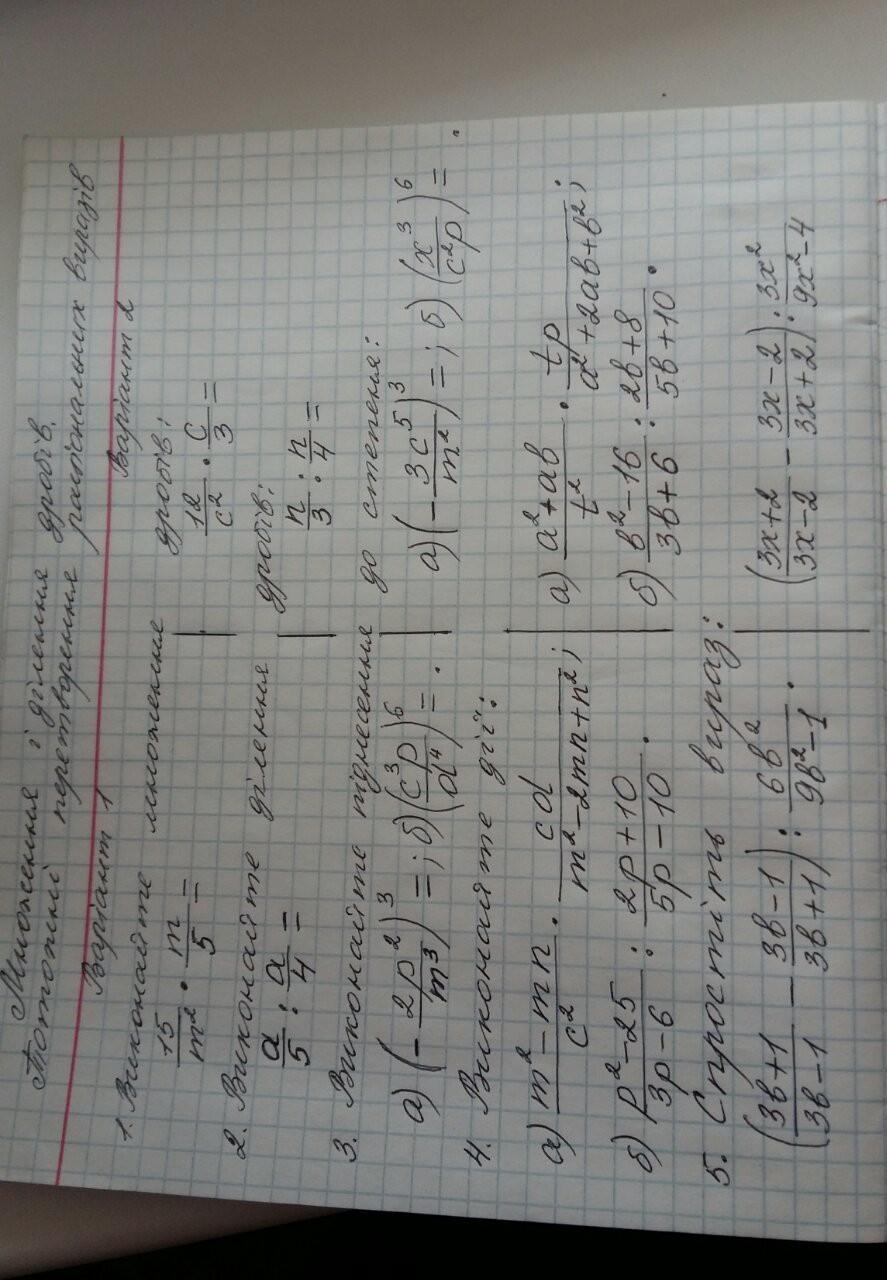 Множення і ділення дробів.
Тотожні перетворення раціональних виразів
Варіант 1 Варіант 2
1. Виконайте множення дробів:
15/m² · m/5 = | 12/c² · c/3 =
2. Виконайте ділення дробів:
a/5 : a/4 = | n/3 : n/4 =
3. Виконайте піднесення до степеня:
а) (-2p²/m³)³ =; б) (c³p/d⁴)⁶ = . | а) (-3c⁵/m²)³ =; б) (x³/c²p)⁶ = .
4. Виконайте дії:
а) m²-mn/c² · cd/m²-2mn+n²; | а) a²+ab/t² · tp/a²+2ab+b²;
б) p²-25/3p-6 : 2p+10/5p-10. | б) b²-16/3b+6 : 2b+8/5b+10.
5. Спростіть вираз:
(3b+1/3b-1 - 3b-1/3b+1) : 6b²/9b²-1. | (3x+2/3x-2 - 3x-2/3x+2) : 3x²/9x²-4